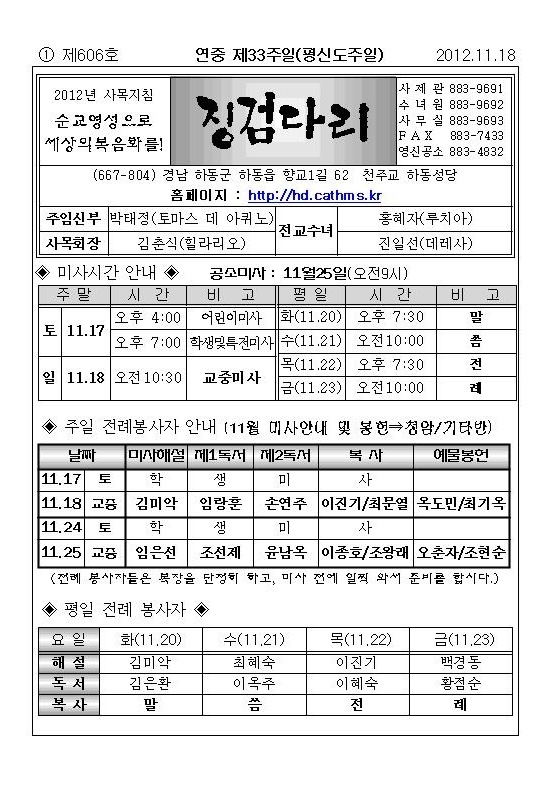 ① 제606호 연중 제33주일(평신도주일) 2012.11.18
2012년 사목지침
순교영성으로
세상의복음화를!
징검다리
사 제 관 883-9691
수 녀 원 883-9692
사 무 실 883-9693
F A X 883-7433
영신공소 883-4832
(667-804) 경남 하동군 하동읍 향교1길 62 천주교 하동성당
홈페이지 : http://hd.cathms.kr
주임신부 박태정(토마스 데 아퀴노) 전교수녀 홍혜자(루치아)
사목회장 김춘식(힐라리오) 진일선(데레사)
◈ 미사시간 안내 ◈ 공소미사 : 11월25일(오전9시)
주 말 시 간 비 고 평 일 시 간 비 고
토 11.17 오후 4:00 어린이미사 화(11.20) 오후 7:30 말
오후 7:00 학생및특전미사 수(11.21) 오전10:00 씀
일 11.18 오전10:30 교중미사 목(11.22) 오후 7:30 전
금(11.23) 오전10:00 례
◈ 주일 전례봉사자 안내 (11월 미사안내 및 봉헌⇒청암/기타반)
날짜 미사해설 제1독서 제2독서 복 사 예물봉헌
11.17 토 학 생 미 사
11.18 교중 김미악 임랑훈 손연주 이진기/최문열 옥도민/최기옥
11.24 토 학 생 미 사
11.25 교중 임은선 조선제 윤남옥 이종호/조왕래 오춘자/조현순
(전례 봉사자들은 복장을 단정히 하고, 미사 전에 일찍 와서 준비를 합시다.)
◈ 평일 전례 봉사자 ◈
요 일 화(11.20) 수(11.21) 목(11.22) 금(11.23)
해 설 김미악 최혜숙 이진기 백경동
독 서 김은환 이옥주 이혜숙 황점순
복 사 말 씀 전 례